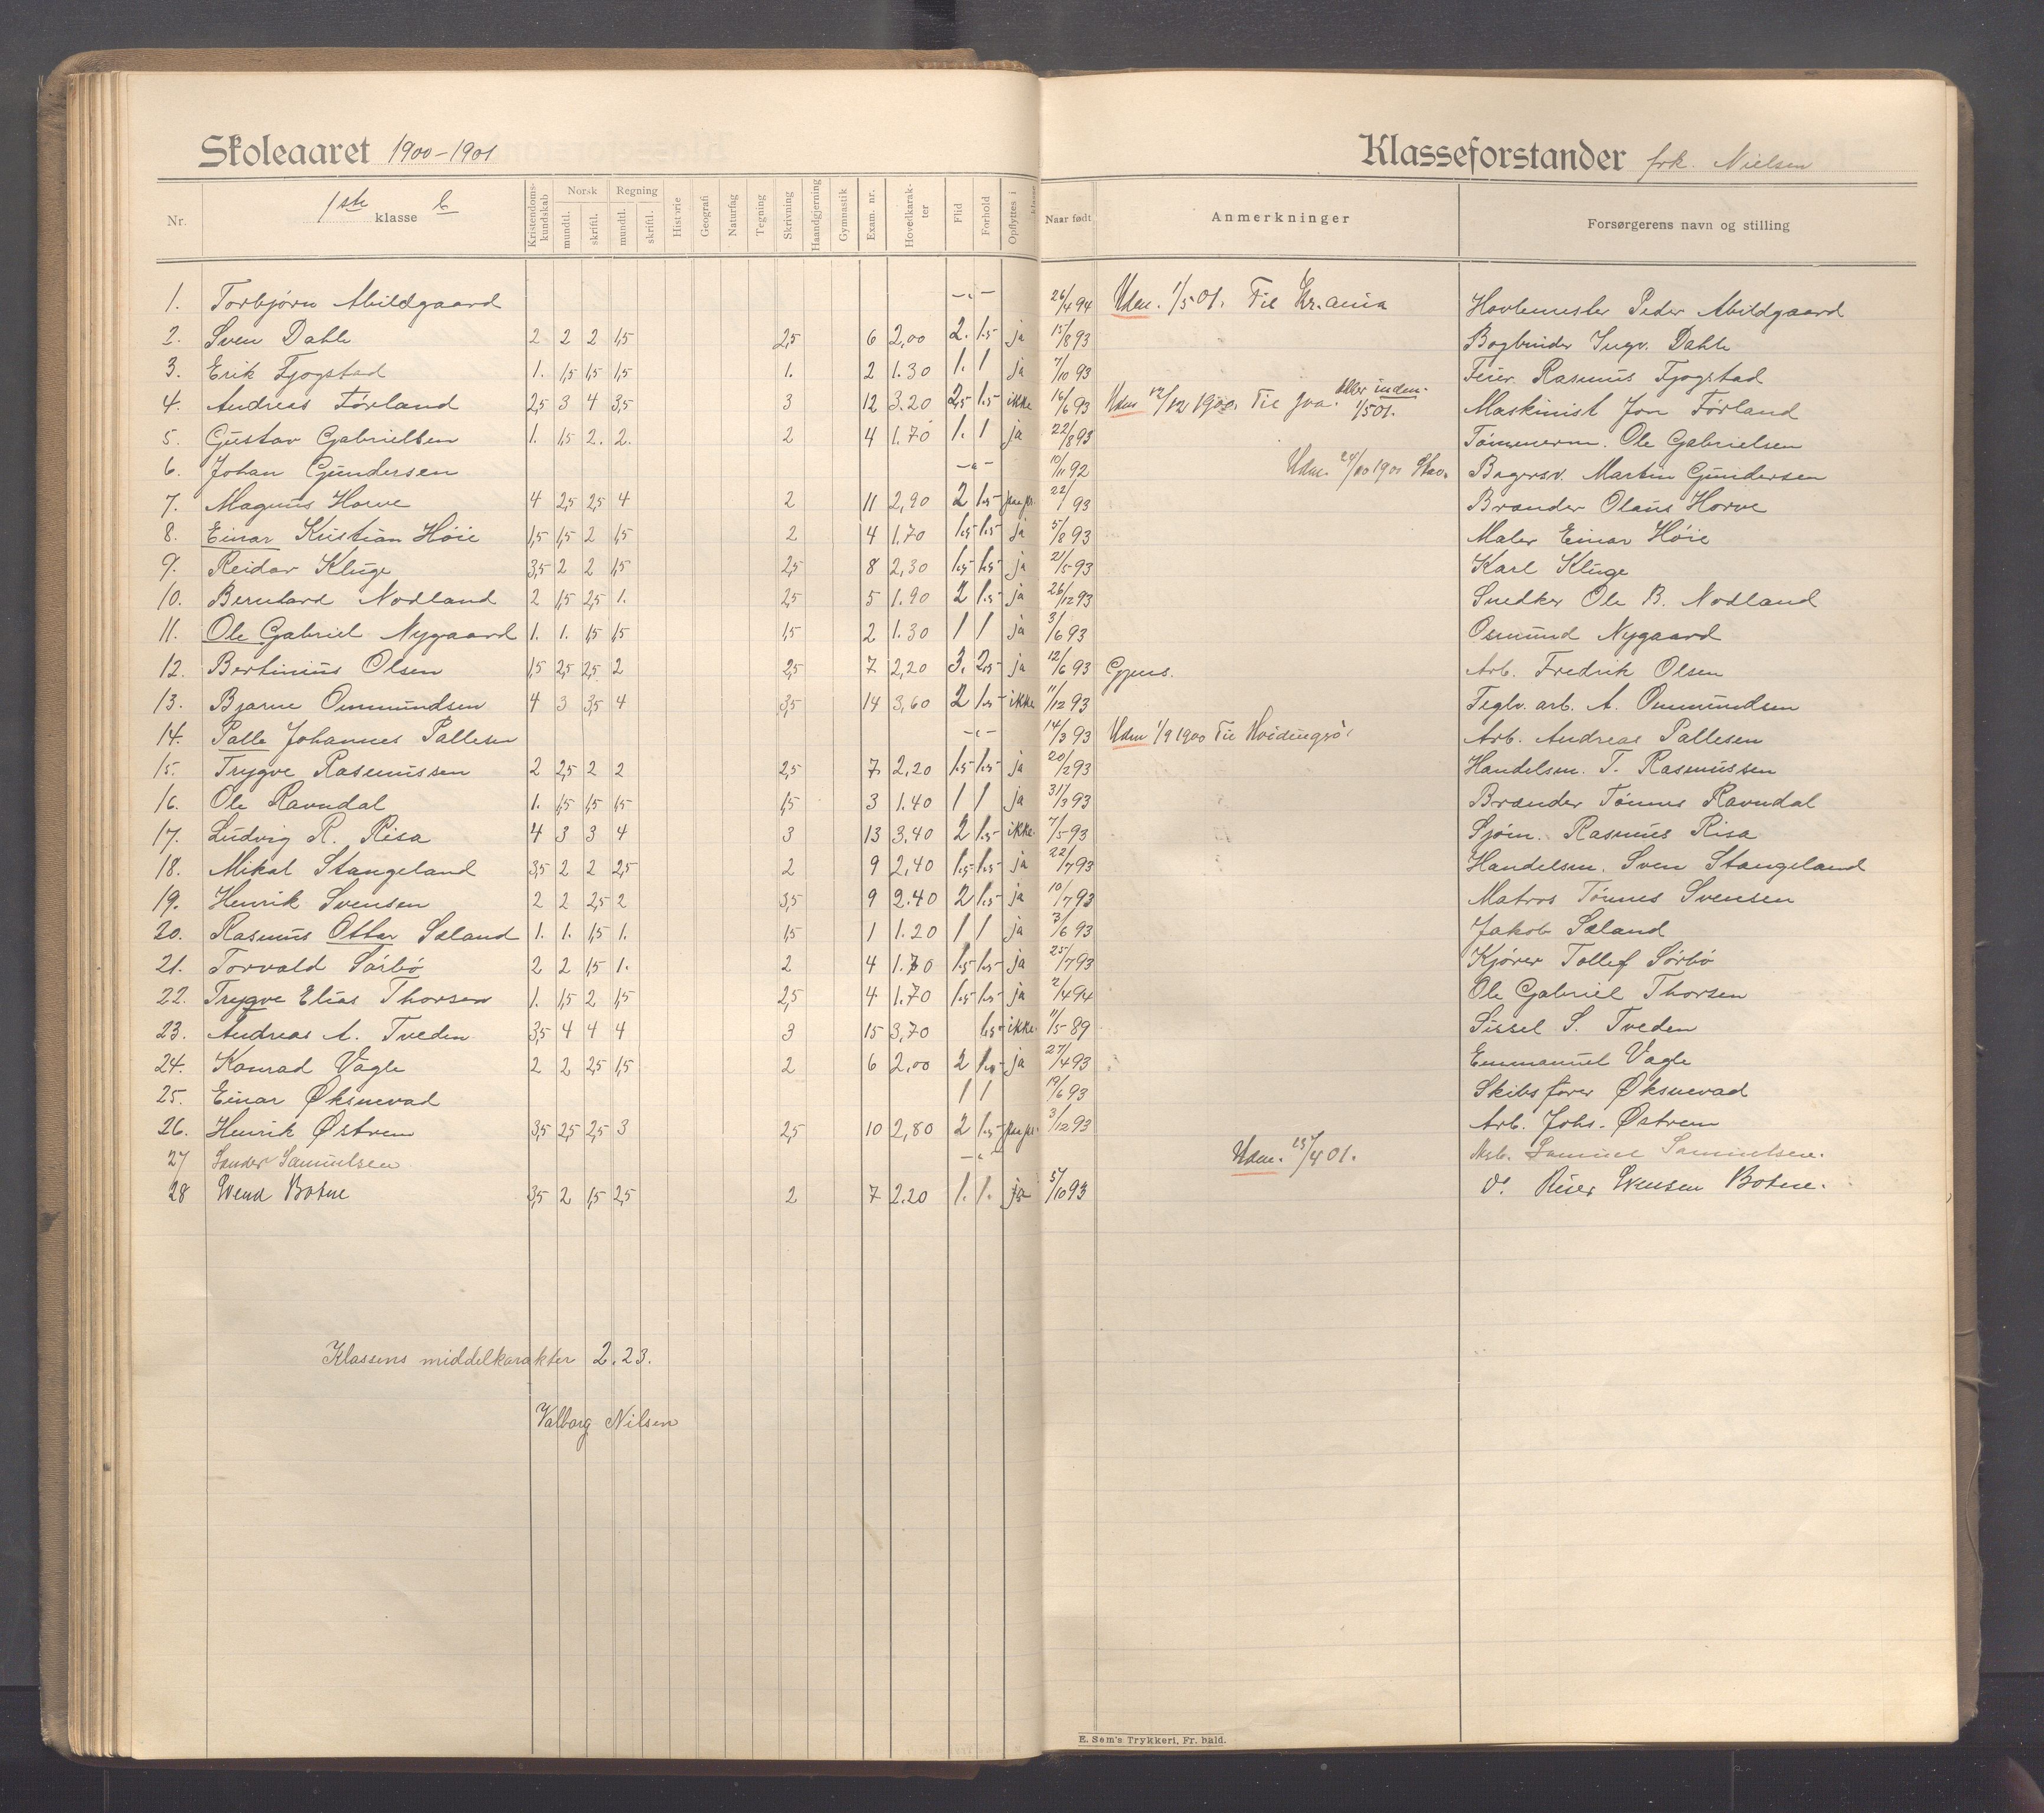 Skoleaaret 1900-1901
Klasseforstander frk. Nielsen
Nr. 1ste klasse C Kristendoms-kundskab Norsk mundtl. skriftl. Regning mundtl. skriftl. Historie Geografi Naturfag Tegning Skrivning Haandgjerning Gymnastik Exam. nr. Hovedkarak-ter Flid Forhold Opflyttes i klasse Naar født Anmerkninger Forsørgerens navn og stilling
1. Torbjørn Abildgaard -"- 26/4 94 Udm. 1/5 01. Til Kr.ania Hovlemester Peder Abildgaard
2. Sven Dahle 2 2 2 1,5 2,5 6 2,00 2. 1.5 ja 15/8 93 Bogbinder Ingv. Dahle
3. Erik Fjogstad 1. 1,5 1,5 1,5 1. 2 1.30 1. 1 ja 7/10 93 Feier Rasmus Fjogstad
4. Andreas Førland 2,5 3 4 3,5 3 12 3.20 2,5 1.5 ikke 16/6 93 Udm 12/12 1900. Til inden. 1/5 01. Maskinist Jon Førland
5. Gustav Gabrielsen 1. 1,5 2. 2. 2 4 1.70 1. 1 ja 22/8 93 Tømmerm. Ole Gabrielsen
6. Johan Gundersen -"- 10/11 92 Udm. 24/10 1900 Stav. Bagersv. Martin Gundersen
7. Magnus Horve 4 2,5 2,5 4 2 11 2,90 2 1.5 22/ 93 Brander Olaus Horve
8. Einar Kristian Høie 1,5 1,5 2 1,5 2 4 1.70 1.5 1.5 ja 5/8 93 Maler Einar Høie
9. Reidar Kluge 3,5 2 2 1,5 2,5 8 2,30 1.5 1.5 ja 21/5 93 Karl Kluge
10. Bernhard Nodland 2 1,5 2,5 1. 2,5 5 1.90 2 1.5 ja 26/12 93 Snedker Ole B. Nodland
11. Ole Gabriel Nygaard 1. 1. 1,5 1,5 1,5 2 1.30 1 1 ja 3/6 93 Osmund Nygaard
12. Bertinius Olsen 1,5 2,5 2,5 2 2,5 7 2,20 3. 2.5 ja 12/6 93 Gjens. Arb. Fredrik Olsen
13. Bjarne Ommundsen 4 3 3,5 4 3,5 14 3,60 2 1.5 ikke 11/12 93 Teglv. arb. A. Ommundsen
14. Palle Johannes Pallesen -"- 14/3 93 Udm 1/9 1900 Til Hvidingsö. Arb. Andreas Pallesen
15. Trygve Rasmussen 2 2,5 2 2 2,5 7 2,20 1.5 1.5 ja 20/2 93 Handelsm. T. Rasmussen
16. Ole Ravndal 1. 1,5 1,5 1,5 1,5 3 1.40 1 1 ja 31/3 93 Brænder Tønnes Ravndal
17. Ludvig R. Risa 4 3 3 4 3 13 3,40 2 1.5 ikke 7/5 93 Sjøm. Rasmus Risa
18. Mikal Stangeland 3,5 2 2 2,5 2 9 2,40 1.5 1.5 ja 22/7 93 Handelsm. Sven Stangeland
19. Henrik Svensen 2 2 2,5 2 3,5 9 2.40 2 1.5 ja 10/7 93 Matros Tønnes Svensen
20. Rasmus Ottar Sæland 1. 1. 1,5 1. 1,5 1 1.20 1 1 ja 3/6 93 Jakob Sæland
21. Torvald Sørbö 2 2 1,5 1. 2 4 1.70 1.5 1.5 ja 25/7 93 Kjører Tollef Sørbö
22. Trygve Elias Thorsen 1. 1,5 2 1,5 2,5 4 1.70 1.5 1.5 ja 2/4 94 Ole Gabriel Thorsen
23. Andreas A. Tveden 3,5 4 4 4 3 15 3,70 1.5 ikke. 11/5 89 Sissel S. Tveden
24. Konrad Vagle 2 2 2,5 1,5 2 6 2,00 2 1.5 ja 27/4 93 Emmanuel Vagle
25. Einar Øksnevad 1 1 19/6 93 Skibsfører Øksnevad
26. Henrik Østrem 3,5 2,5 2,5 3 2,5 10 2,80 2 1.5 3/12 93 Arb. Johs. Østrem
27 Sander Samuelsen -"- Udm. 23/4 01. Arb. Samuel Samuelsen.
28 Svend Botne 3,5 2 1,5 2,5 2 7 2.20 1. 1. ja 5/10 93 Do Reier Svensen Botne.
Klassens middelkarakter 2.23.
Valborg Nilsen
E. Sem's Trykkeri, Fr. hald.